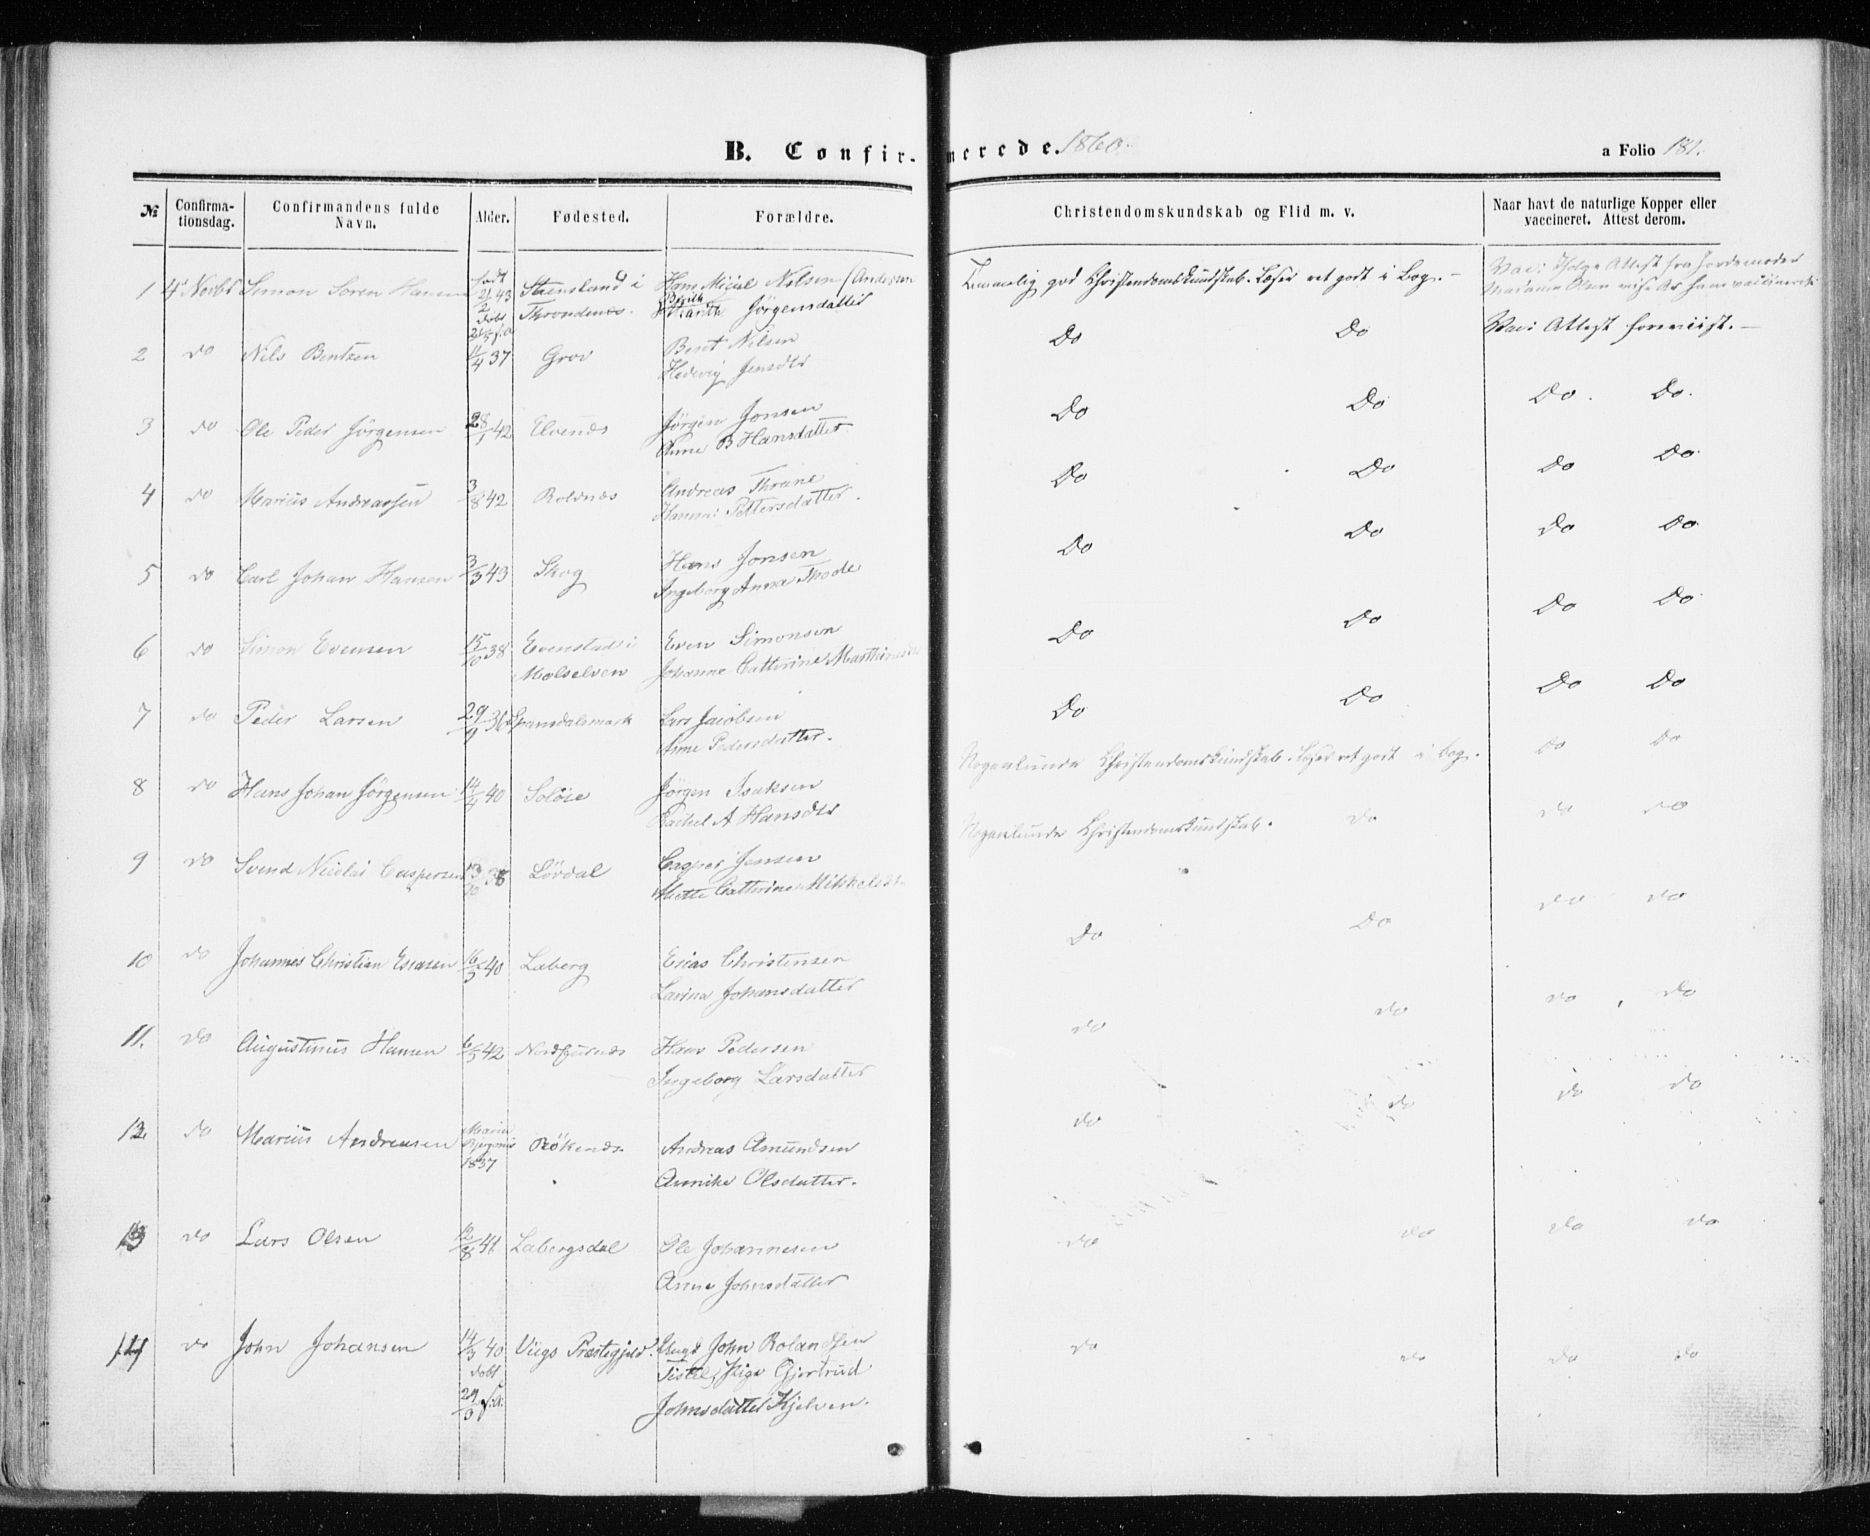 B. Confir- merede. 1860. a Folio 181.
№ Confirma-tionsdag. Confirmandens fulde Navn. Alder. Fødested. Forældre. Christendomskundskab og Flid m. v. Naar havt de naturlige Kopper eller vaccineret. Attest derom.
1 4de Novbr Simon Soren Hansen født 21/2 43 døbt f. A. Steensland i
Throndenes. Hans Nilsen (Andersen
Jörgensdatter Temmelig god Christendomskundskab. Læser ret godt i Bog.- Attest fra Jordemoder
Madame Olsen
2 do Nils Bentzen 11/4 37 Grov Bent Nilsen
Hedevig Jensdtr Do Do Vac: Attest foreviist.-
3 do Ole Peder Jörgensen 28/1 42 Elvenæs Jörgen Jonsen
Anne B Hansdatter. Do Do Do. Do.
4 do Marius Andreassen 3/8 42 Roldnæs Andreas Thrane
Hanna Pettersdatter. Do Do Do Do.
5 do Carl Johan Hansen 3/3 43 Skog Hans Jonsen
Ingeborg Anna Thode Do Do Do Do
6 do Simon Evensen 15/10 38 Evenstad i
Malselven Even Simonsen
Johanne Catterine Do Do Do Do.
7 do Peder Larsen 29/9 36 Spansdalsmark Lars Jacobsen
Anne Pedersdatter. Do Do Do Do
8 do Hans Johan Jörgensen 14/4 40 Soløie Jörgen Isaksen
Rachel A Hansdtr Nogenlunde Christendomskundskab. Læser ret godt i bog. do do
9 do Svend Nicolai Caspersen 13/10 38 Lövdal Casper Jensen
Mette Catterine Mikkelsdtr Nogenlunde Christendomskundskab. do do do
10 do Johannes Christian Esiasen 16/3 40 Laberg Esias Christensen
Lavina Johansdatter Do Do do do
11. do Augustinus Hansen 6/5 42 Nordfjurnæs Hans Pedersen
Ingeborg Larsdatter do do do, do
12. do Marius Andreasen Maria
1837 Rökenæs Andreas Amundsen
Annike Olsdatter. do do do do
13 do Lars Olsen 12/8 41 Labergsdal Ole Johannesen
Anne Johnsdatter do do do do
14 do John Johansen 14/3 40
døbt
29/3 f.A. Præstegjeld. Ungk John Rolandsen
Pige Gjertrud
Johnsdatter Kjelven. do do do do